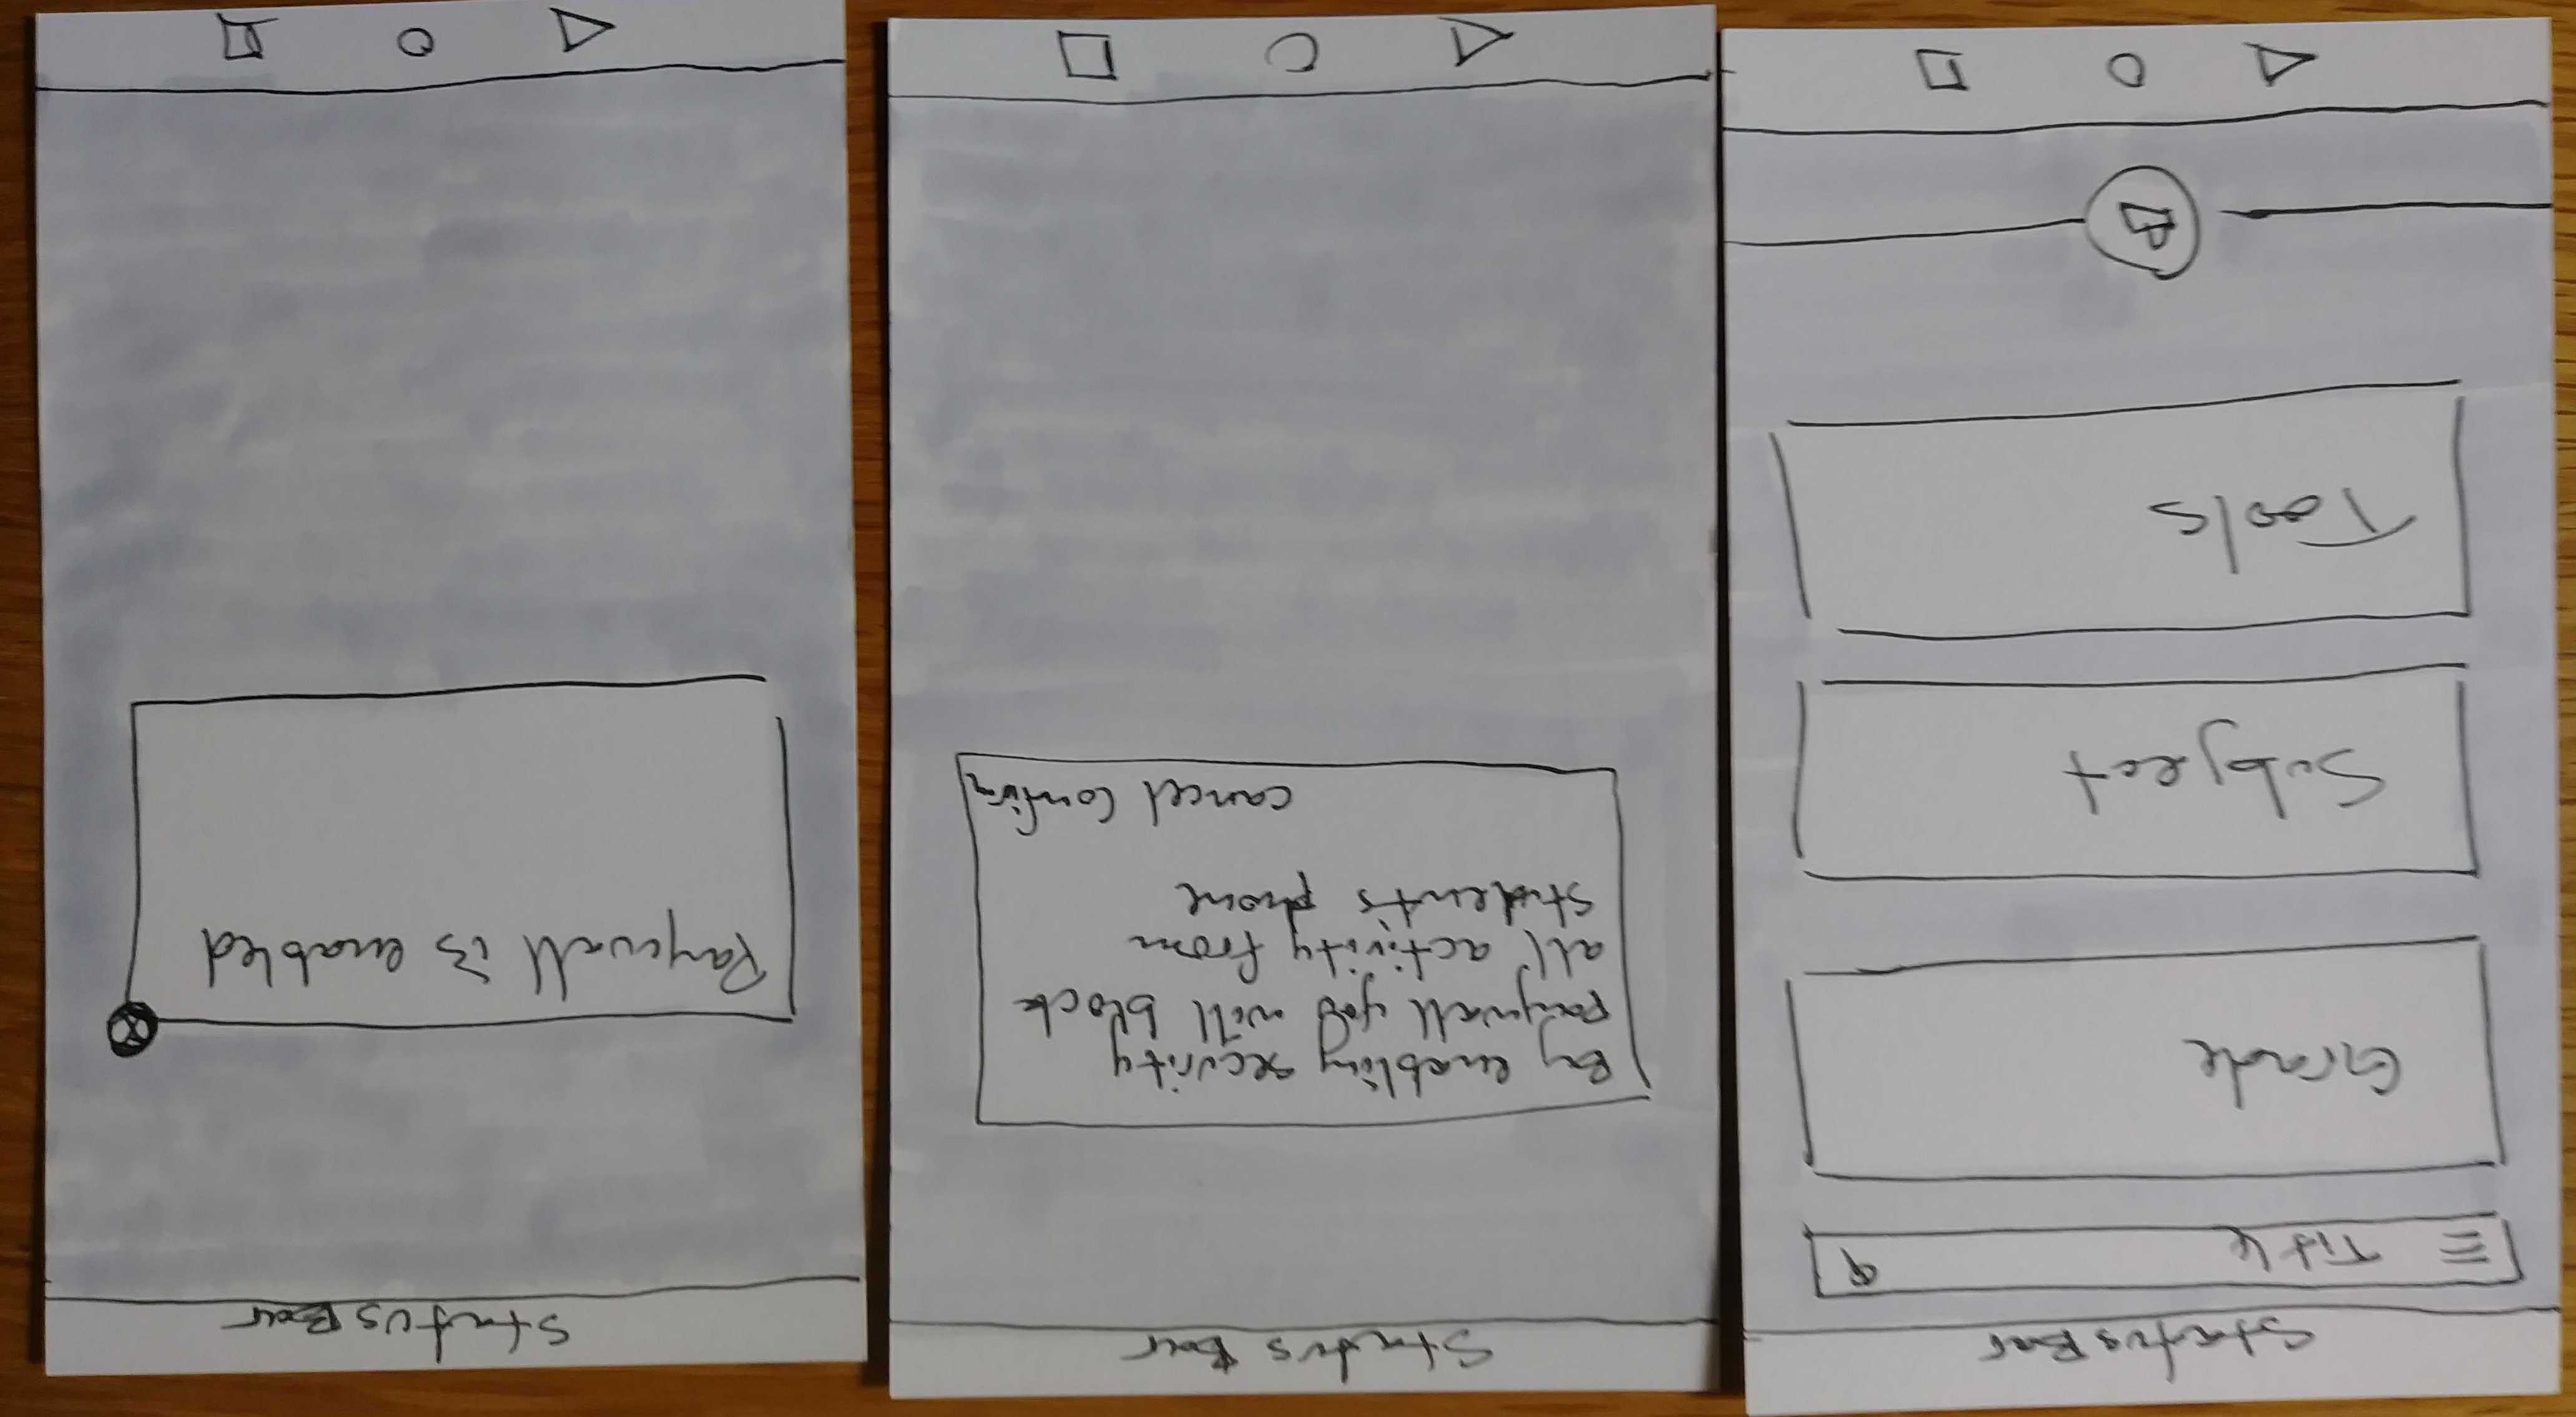 Status Bar
Title
Grade
Subject
Tools
Status Bar
By enabling security
paywall you will block
all activity from
student's phone
cancel Confirm
Status Bar
Paywall is enabled